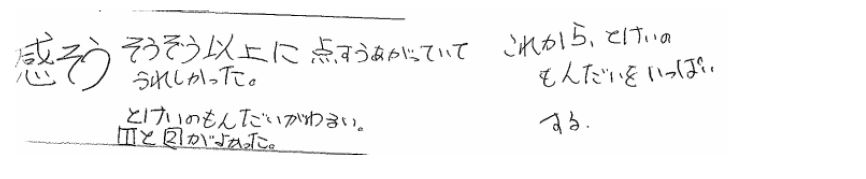 感そう
そうぞう以上に点すうあがっていて
うれしかった。
とけいのもんだいがわるい。
1と2がよかった。
これから、とけいの
もんだいをいっぱい
する.